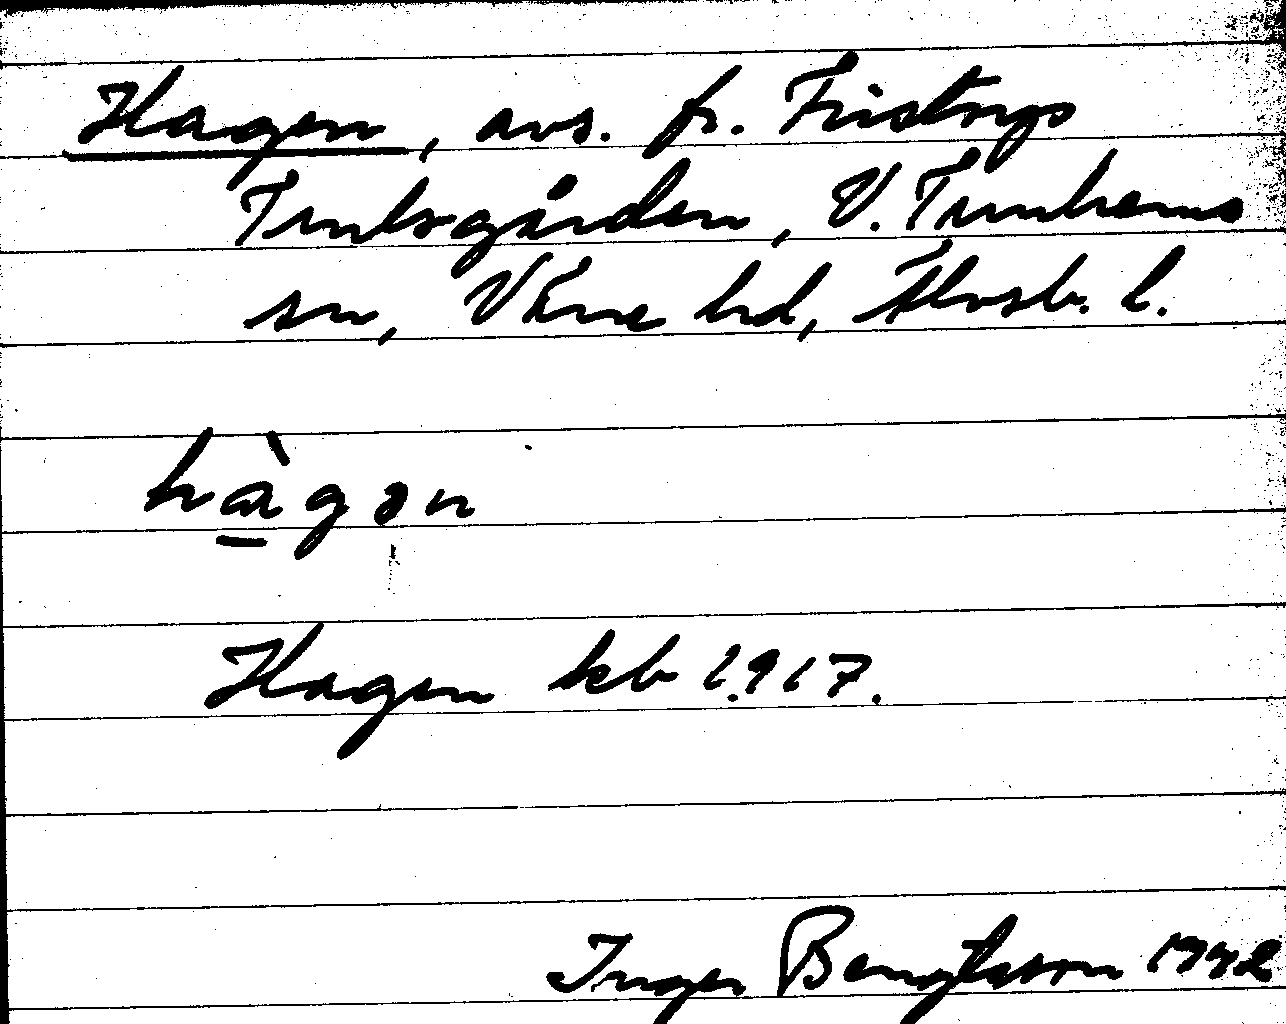 Hagen, avs. fr. Fristorps
Trulsgården, V. Tunhems
sn, Väne hd, Älvsb. l.
hàgən
Hagen kb 1917.
Inger Bengtsson 1942